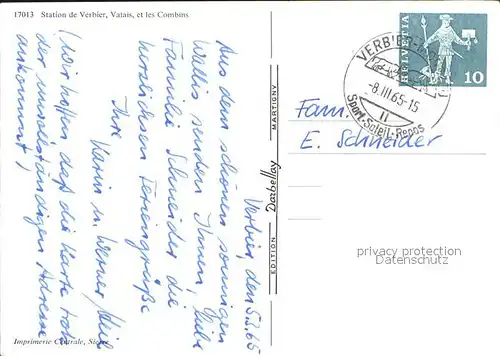 17013 Station de Verbier, Vatais, et les Combins
Verbier, den 5.3.65
Aus dem schönen sonnigen
Wallis senden Ihnen, liebe
Familie Schneider die
herzlichsten Feriengrüße
Ihre
Karin u. Werner
(Wir hoffen daß die Karte trotz
der unvollständigen Adresse
ankommt)
Imprimerie Centrale, Sierre
EDITION Darbellay MARTIGNY
HELVETIA
10
VERBIER
-8.III.65-15
Sport-Soleil-Repos
Fam.
E. Schneider
privacy protection
Datenschutz